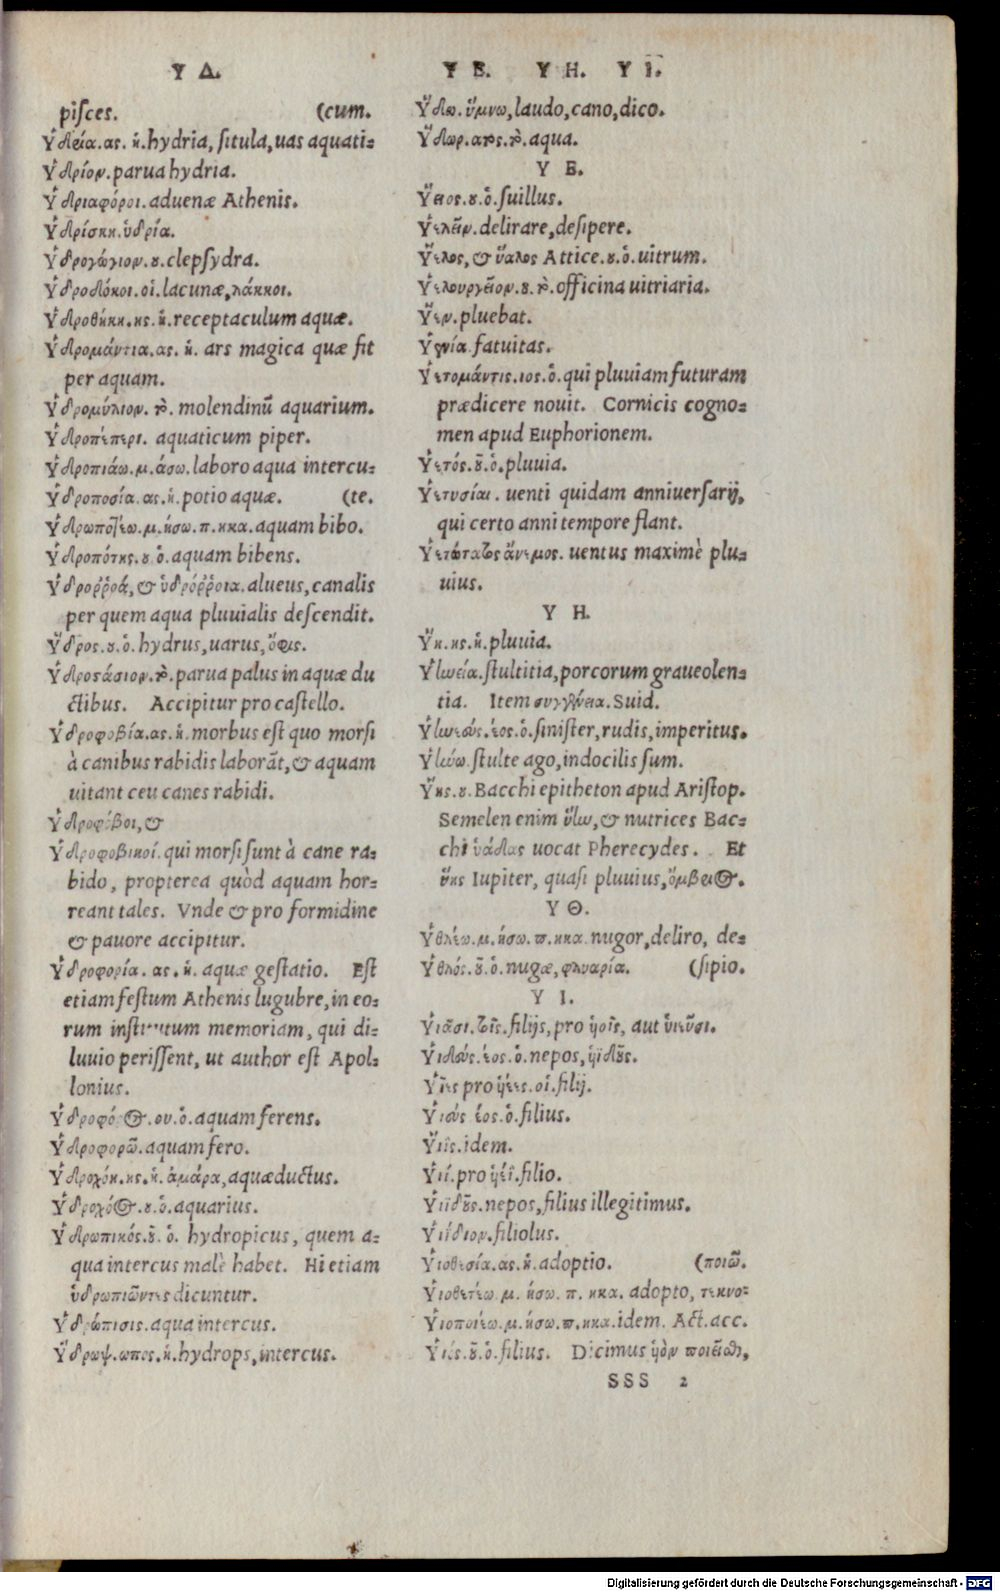 Υ Δ.
pisces. (cum.
Ὑδρεία.ας.ἡ.hydria, situla, uas aquati-
Ὑδρίον.parua hydria.
Ὑδριαφόροι.aduenæ Athenis.
Ὑδρίσκη.ὑδρία.
Ὑδρογώγιον.ου.clepsydra.
Ὑδροδόκοι.οἱ.lacunæ,λάκκοι.
Ὑδροθήκη.ης.ἡ.receptaculum aquæ.
Ὑδρομάντια.ας.ἡ. ars magica quæ fit
per aquam.
Ὑδρομύλιον.τὸ. molendinū aquarium.
Ὑδροπέπερι. aquaticum piper.
Ὑδροπιάω.μ.άσω.laboro aqua intercu-
Ὑδροποσία.ας.ἡ.potio aquæ. (te.
Ὑδρωποτέω.μ.ήσω.π.ηκα.aquam bibo.
Ὑδροπότης.ου ὁ.aquam bibens.
Ὑδροῤῥοά, & ὑδρόῤῥοια.alueus, canalis
per quem aqua pluuialis descendit.
Ὕδρος.ου.ὁ.hydrus, uarus, ὄφις.
Ὑδροστάσιον.τὸ.parua palus in aquæ du
ctibus. Accipitur pro castello.
Ὑδροφοβία.ας.ἡ.morbus est quo morsi
à canibus rabidis laborāt, & aquam
uitant ceu canes rabidi.
Ὑδροφόβοι, &
Ὑδροφοβικοί.qui morsi sunt à cane ra-
bido, propterea quòd aquam hor-
reant tales. Vnde & pro formidine
& pauore accipitur.
Ὑδροφορία. ας.ἡ. aquæ gestatio. Est
etiam festum Athenis lugubre, in eo-
rum institutum memoriam, qui di-
luuio perissent, ut author est Apol-
lonius.
Ὑδροφόρος.ου.ὁ.aquam ferens.
Ὑδροφορῶ.aquam fero.
Ὑδροχόη.ης.ἡ.ἀμάρα, aquæductus.
Ὑδροχόος.ου.ὁ.aquarius.
Ὑδρωπικός.οῦ. ὁ. hydropicus, quem a-
qua intercus malè habet. Hi etiam
ὑδρωπιῶντες dicuntur.
Ὑδρώπισις.aqua intercus.
Ὕδρωψ.ωπος.ἡ.hydrops, intercus.
Υ Ε. Υ Η. Υ Ι.
Ὕδω.ὕμνω, laudo, cano, dico.
Ὕδωρ.ατος.τὸ.aqua.
Υ Ε.
Ὕειος.ου.ὁ.suillus.
Ὑελεῖν.delirare, desipere.
Ὕελος, & ὕαλος Attice.ου.ὁ.uitrum.
Ὑελουργεῖον.ου.τὸ.officina uitriaria.
Ὗεν.pluebat.
Ὑηνία.fatuitas.
Ὑετομάντις.ιος.ὁ.qui pluuiam futuram
prædicere nouit. Cornicis cogno-
men apud Euphorionem.
Ὑετός.οῦ.ὁ.pluuia.
Ὑετυσίαι. uenti quidam anniuersarij,
qui certo anni tempore flant.
Ὑετώτατος ἄνεμος. uentus maximè plu-
uius.
Υ Η.
Ὕη.ης.ἡ.pluuia.
Ὑηνεία.stultitia, porcorum graueolen-
tia. Item συγγένεια.Suid.
Ὑηνεύς.έος.ὁ.sinister, rudis, imperitus.
Ὑηνέω.stulte ago, indocilis sum.
Ὕης.ου.Bacchi epitheton apud Aristop.
Semelen enim ὕην, & nutrices Bac-
chi ὑάδας uocat Pherecydes. Et
ὕης Iupiter, quasi pluuius, ὄμβριος.
Υ Θ.
Ὑθλέω.μ.ήσω.π.ηκα.nugor, deliro, de-
Ὑθλός.οῦ.ὁ.nugæ, φλυαρία. (sipio.
Υ Ι.
Ὑιᾶσι.τοῖς.filijs, pro ὑιοῖς, aut ὑιεῦσι.
Ὑιδεύς.έος.ὁ.nepos, ὑϊδοῦς.
Ὑῖες pro ὑιέες.οἱ.filij.
Ὑιεύς έος.ὁ.filius.
Ὕιϊς.idem.
Ὑιί.pro ὑιέϊ.filio.
Ὑιϊδοῦς.nepos, filius illegitimus.
Ὑιίδιον.filiolus.
Ὑιοθεσία.ας.ἡ.adoptio. (ποιῶ.
Ὑιοθετέω.μ. ήσω. π. ηκα. adopto, τεκνο-
Ὑιοποιέω.μ.ήσω.π.ηκα.idem. Act.acc.
Ὑιός.οῦ.ὁ.filius. Dicimus ὑιὸν ποιεῖσθαι,
SSS 2
Digitalisierung gefördert durch die Deutsche Forschungsgemeinschaft - DFG